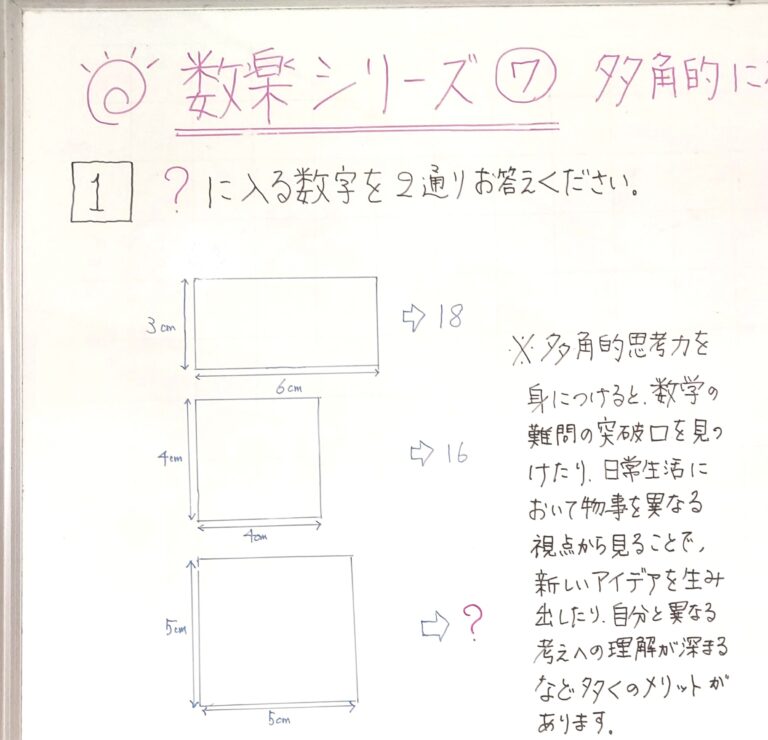 数楽シリーズ⑦ 多角的に
1 ?に入る数字を2通りお答えください。
3cm
6cm
⇨ 18
4cm
4cm
⇨ 16
5cm
5cm
⇨ ?
※多角的思考力を
身につけると、数学の
難問の突破口を見つ
けたり、日常生活に
おいて物事を異なる
視点から見ることで、
新しいアイデアを生み
出したり、自分と異なる
考えへの理解が深まる
など多くのメリットが
あります。